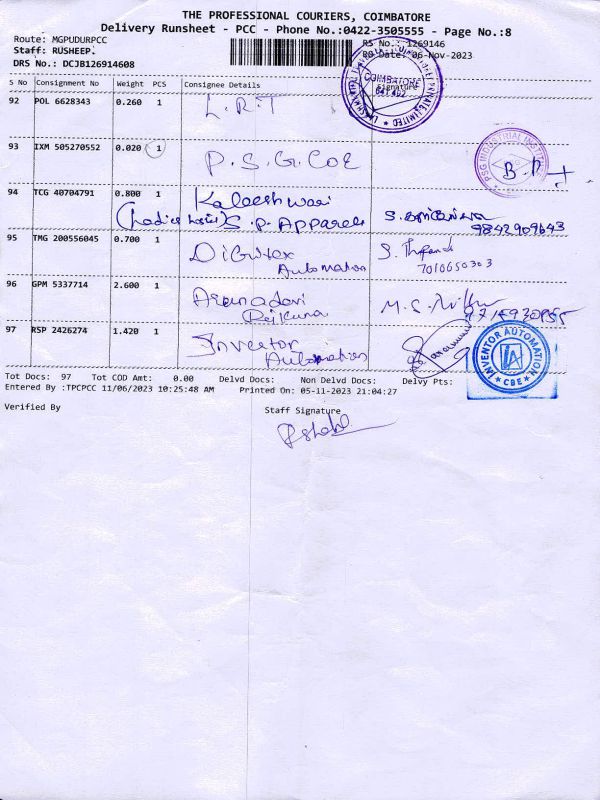 THE PROFESSIONAL COURIERS, COIMBATORE
Delivery Runsheet - PCC - Phone No.:0422-3505555 - Page No.:8
Route: MGPUDURPCC
RS No.: 1269146
Staff: RUSHEEP.
RS Date: 06-Nov-2023
DRS No.: DCJB126914608
S No Consignment No Weight PCS Consignee Details Signature
COIMBATORE
641 402
92 POL 6628343 0.260 1 L.R.T
93 IXM 505270552 0.020 1 P.S.G.COE
PSG INDUSTRIAL INSTITUTE
94 TCG 40704791 0.800 1 Kaleeshwari
(Ladies hostel) S.P. Apparels
9842909643
95 TMG 200556045 0.700 1 Digitex
Automation
S.
7010650303
96 GPM 5337714 2.600 1
M.S.
97 RSP 2426274 1.420 1 Inventor
Automation
INVENTOR AUTOMATION
CBE
Tot Docs: 97 Tot COD Amt: 0.00 Delvd Docs: Non Delvd Docs: Delvy Pts:
Entered By :TPCPCC 11/06/2023 10:25:48 AM Printed On: 05-11-2023 21:04:27
Verified By
Staff Signature